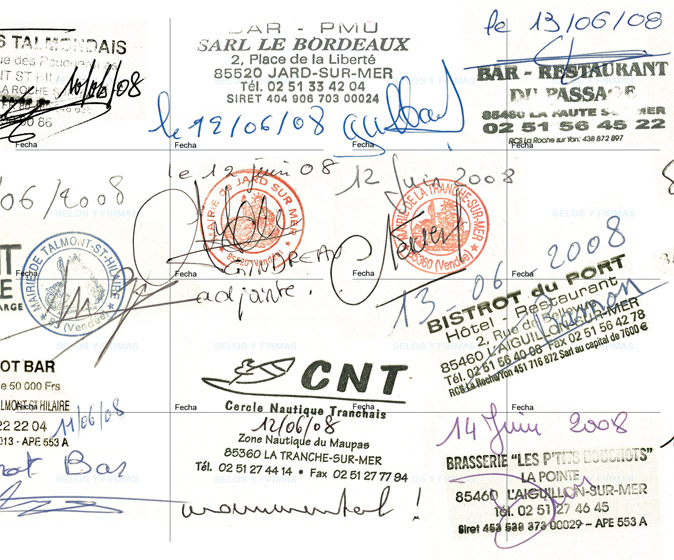 S TALMONDAIS
10/06/08
BAR - PMU
SARL LE BORDEAUX
2, Place de la Liberté
85520 JARD-SUR-MER
Tél. 02 51 33 42 04
SIRET 404 906 703 00024
le 12/06/08
le 13/06/08
BAR - RESTAURANT
DU PASSAGE
85460 LA FAUTE SUR MER
02 51 56 45 22
RCS La Roche sur Yon. 438 872 897
Fecha
Fecha
Fecha
Fecha
06/2008
BELOS Y FIRMAS
MAIRIE DE TALMONT-ST-HILAIRE
85 (Vendée)
le 12 juin 08
MAIRIE de JARD SUR MER
85520 (Vendée)
adjointe.
12 Juin 2008
MAIRIE DE LA TRANCHE-SUR-MER
85360 (Vendée)
BELOS Y FIRMAS
Fecha
Fecha
Fecha
13 06 2008
BISTROT du PORT
Hôtel - Restaurant
2, Rue de Bellevue
85460 L'AIGUILLON-SUR-MER
Tél. 02 51 56 40 08 Fax 02 51 56 42 78
RCS La Roche/Yon 451 716 872 Sarl au capital de 7600 €
OT BAR
e 50 000 Frs
TALMONT ST HILAIRE
22 22 04
11/06/08
013 - APE 553 A
CNT
Cercle Nautique Tranchais
12/06/08
Zone Nautique du Maupas
85360 LA TRANCHE-SUR-MER
Tél. 02 51 27 44 14 • Fax 02 51 27 77 94
BELOS Y FIRMAS
BELOS Y FIRMAS
Fecha
Fecha
Fecha
14 Juin 2008
BRASSERIE "LES P'TITS BOUCHOTS"
LA POINTE
85460 L'AIGUILLON-SUR-MER
Tél. 02 51 27 46 45
Siret 453 538 373 00029 - APE 553 A